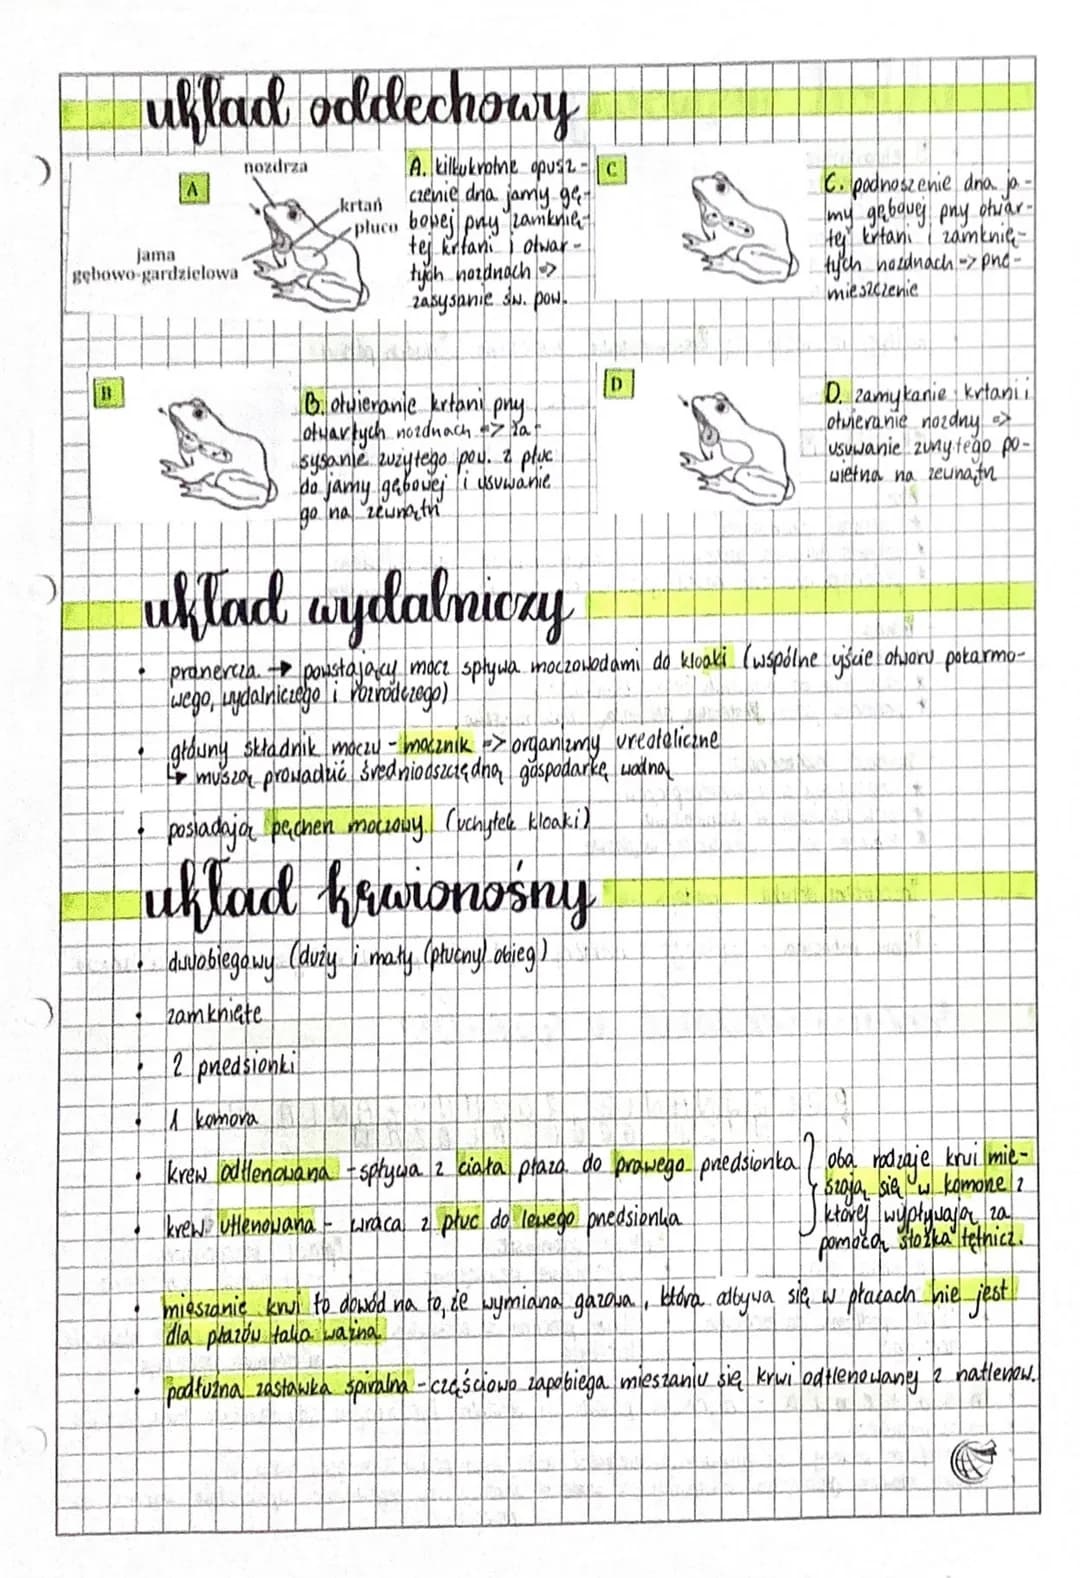 układ oddechowy
A
nozdrza
krtań
płuco
jama
gębowo-gardzielowa
A. kilkukrotne opusz-
czenie dna jamy gę-
bowej przy zamknię-
tej krtani i otwar-
tych nozdrzach =>
zasysanie św. pow.
C
C. podnoszenie dna ja-
my gębowej przy otwar-
tej krtani i zamknię-
tych nozdrzach => prze-
mieszczenie
B
B. otwieranie krtani przy
otwartych nozdrzach => za-
sysanie zużytego pow. z płuc
do jamy gębowej i usuwanie
go na zewnątrz
D
D. zamykanie krtani i
otwieranie nozdrzy =>
usuwanie zużytego po-
wietrza na zewnątrz
układ wydalniczy
• pranercza → powstający mocz spływa moczowodami do kloaki (wspólne ujście otworu pokarmo-
wego, wydalniczego i rozrodczego)
• główny składnik moczu - mocznik => organizmy ureoteliczne
↳ muszą prowadzić średniooszczędną gospodarkę wodną
• posiadają pęcherz moczowy (uchyłek kloaki)
układ krwionośny
• dwuobiegowy (duży i mały (płucny) obieg)
• zamknięte
• 2 przedsionki
• 1 komora
• krew odtlenowana - spływa z ciała płaza do prawego przedsionka
• krew utlenowana - wraca z płuc do lewego przedsionka
oba rodzaje krwi mie-
szają się w komorze z
której wypływają za
pomocą stożka tętnicz.
• mieszanie krwi to dowód na to, że wymiana gazowa, która odbywa się w płucach nie jest
dla płazów taka ważna
• podłużna zastawka spiralna - częściowo zapobiega mieszaniu się krwi odtlenowanej z natlenow.